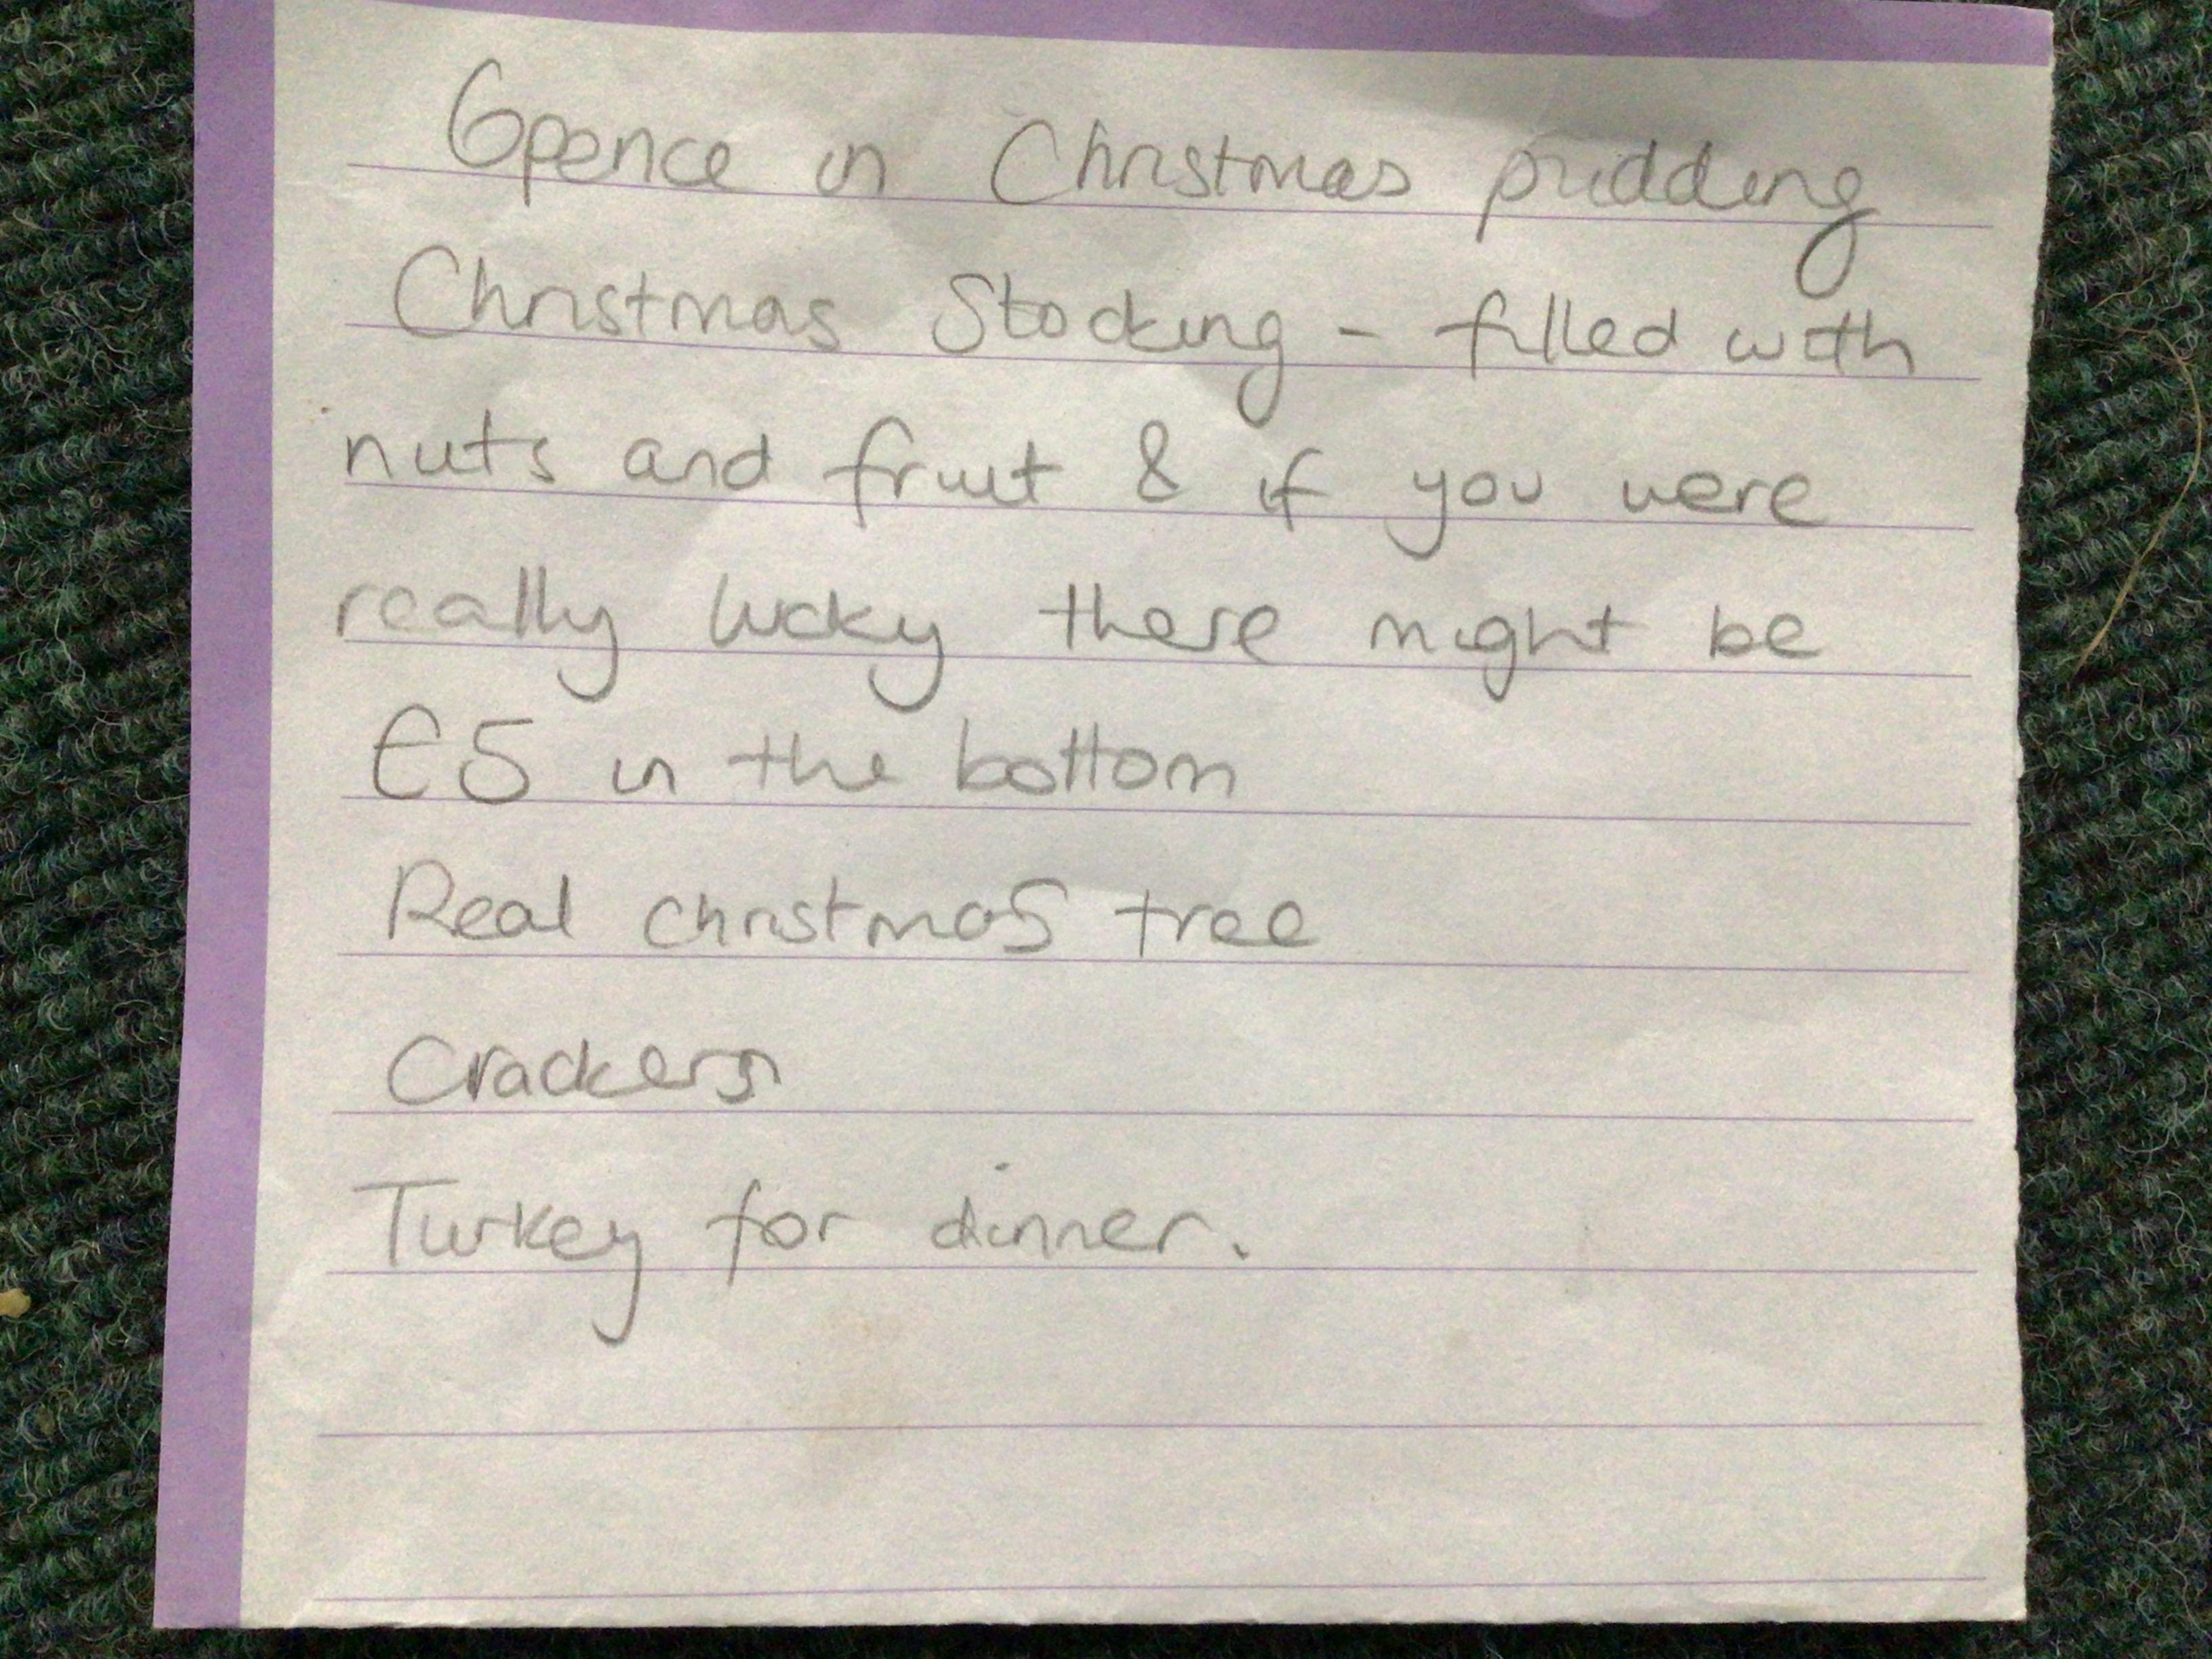 6pence in Christmas pudding
Christmas Stocking - filled with
nuts and fruit & if you were
really lucky there might be
£5 in the bottom
Real christmas tree
Crackers
Turkey for dinner.